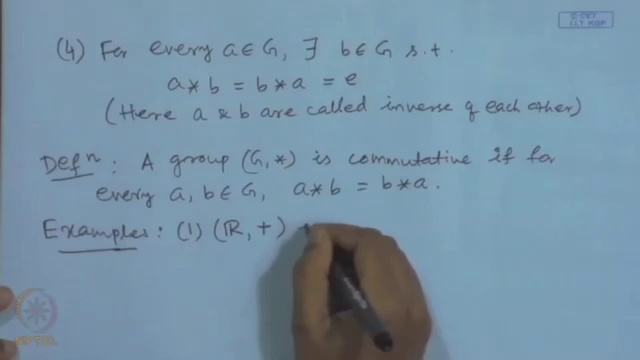 © CET
I.I.T. KGP
(4) For every a ∈ G, ∃ b ∈ G s.t.
a * b = b * a = e
(Here a & b are called inverse of each other)
Defⁿ: A group (G, *) is commutative if for
every a, b ∈ G, a * b = b * a.
Examples: (1) (ℝ, +)
NPTEL